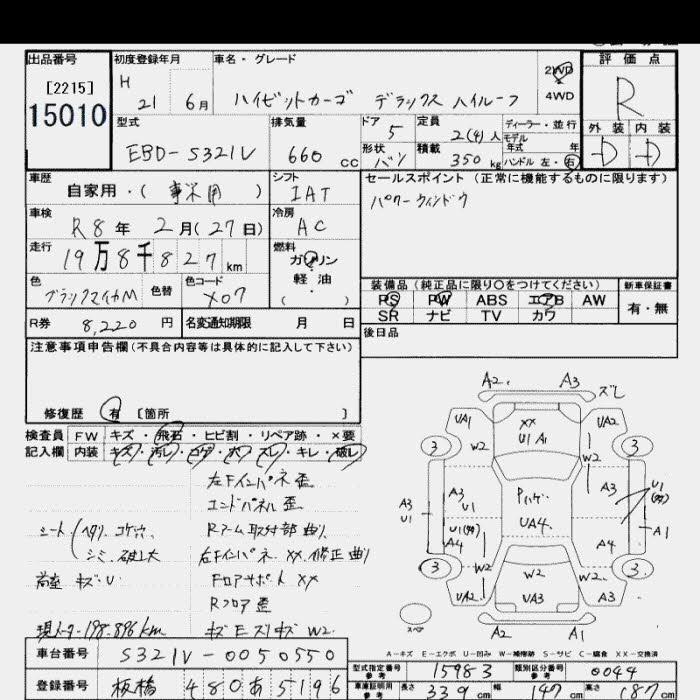 出品番号 初度登録年月 車名・グレード 評価点
[2215] H 21 6月 ハイゼットカーゴ デラックス ハイルーフ 2WD 4WD R
15010 型式 排気量 ドア 定員 ディーラー・並行 外装 内装
EBD-S321V 660 cc 5 2(4)人 モデル年式 年
形状 バン 積載 350kg ハンドル 左・右 D D
車歴 シフト セールスポイント (正常に機能するものに限ります)
自家用・( 事業用 ) IAT パワーウィンドウ
車検 R8年 2月(27日) 冷房 AC
走行 19万8千827km 燃料 ガソリン 軽油 ( ・ )
色 ブラックマイカM 色替 色コード X07
装備品 (純正品に限り〇をつけてください) 新車保証書
PS PW ABS エアB AW 有・無
SR ナビ TV カワ
R券 8,220円 名変通知期限 月 日 後日品
注意事項申告欄(不具合内容等は具体的に記入して下さい)
修復歴 有 [箇所 ]
検査員 FW キズ・飛石・ヒビ割・リペア跡・×要
記入欄 内装 キズ・汚レ・コゲ・穴・スレ・キレ・破レ
左Fインパネ歪
エンドパネル歪
シート/ヘタリ、コゲ穴 Rアーム取付部曲り
シミ、破レ大 右Fインパネ XX、修正曲り
荷室 キズ・U Fロアサポート XX
Rフロア歪
現メーター198,896km キズEスリキズ W2
車台番号 S321V-0050550
登録番号 板橋 480 あ 5196
A2 A3 ズレ
UA1 XX U1 A1 UA2
3 W2 W2 3
A3 U1 A3 U1 Pハゲ UA4 A3 U1
U1 A4 A4 A1
3 W2 W2 W2 3
UA2 UA3 A3
スペア A2 A1
A-キズ E-エクボ U-凹み W-補修跡 S-サビ C-腐食 XX-交換済
型式指定番号 参考 15983 類別区分番号 参考 0044
車庫証明用 参考 長さ 339 cm 幅 147 cm 高さ 187 cm